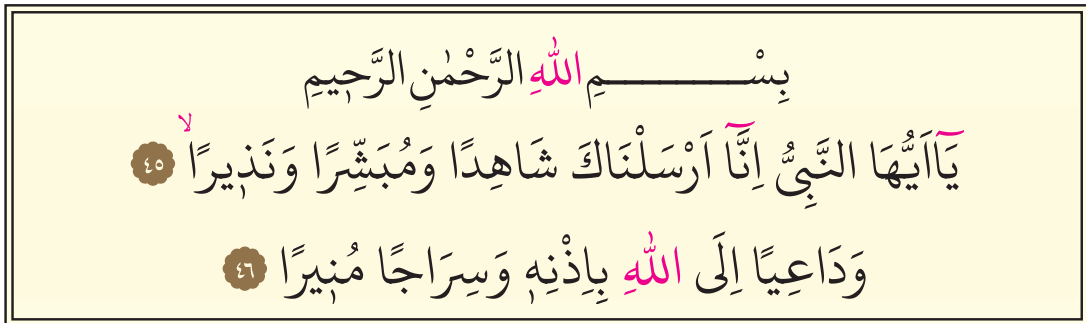 بِسْــــــــــــمِ اللّٰهِ الرَّحْمٰنِ الرَّح۪يمِ
يَٓااَيُّهَا النَّبِيُّ اِنَّٓا اَرْسَلْنَاكَ شَاهِدًا وَمُبَشِّرًا وَنَذ۪يرًاۙ ٤٥
وَدَاعِيًا اِلَى اللّٰهِ بِاِذْنِه۪ وَسِرَاجًا مُن۪يرًا ٤٦